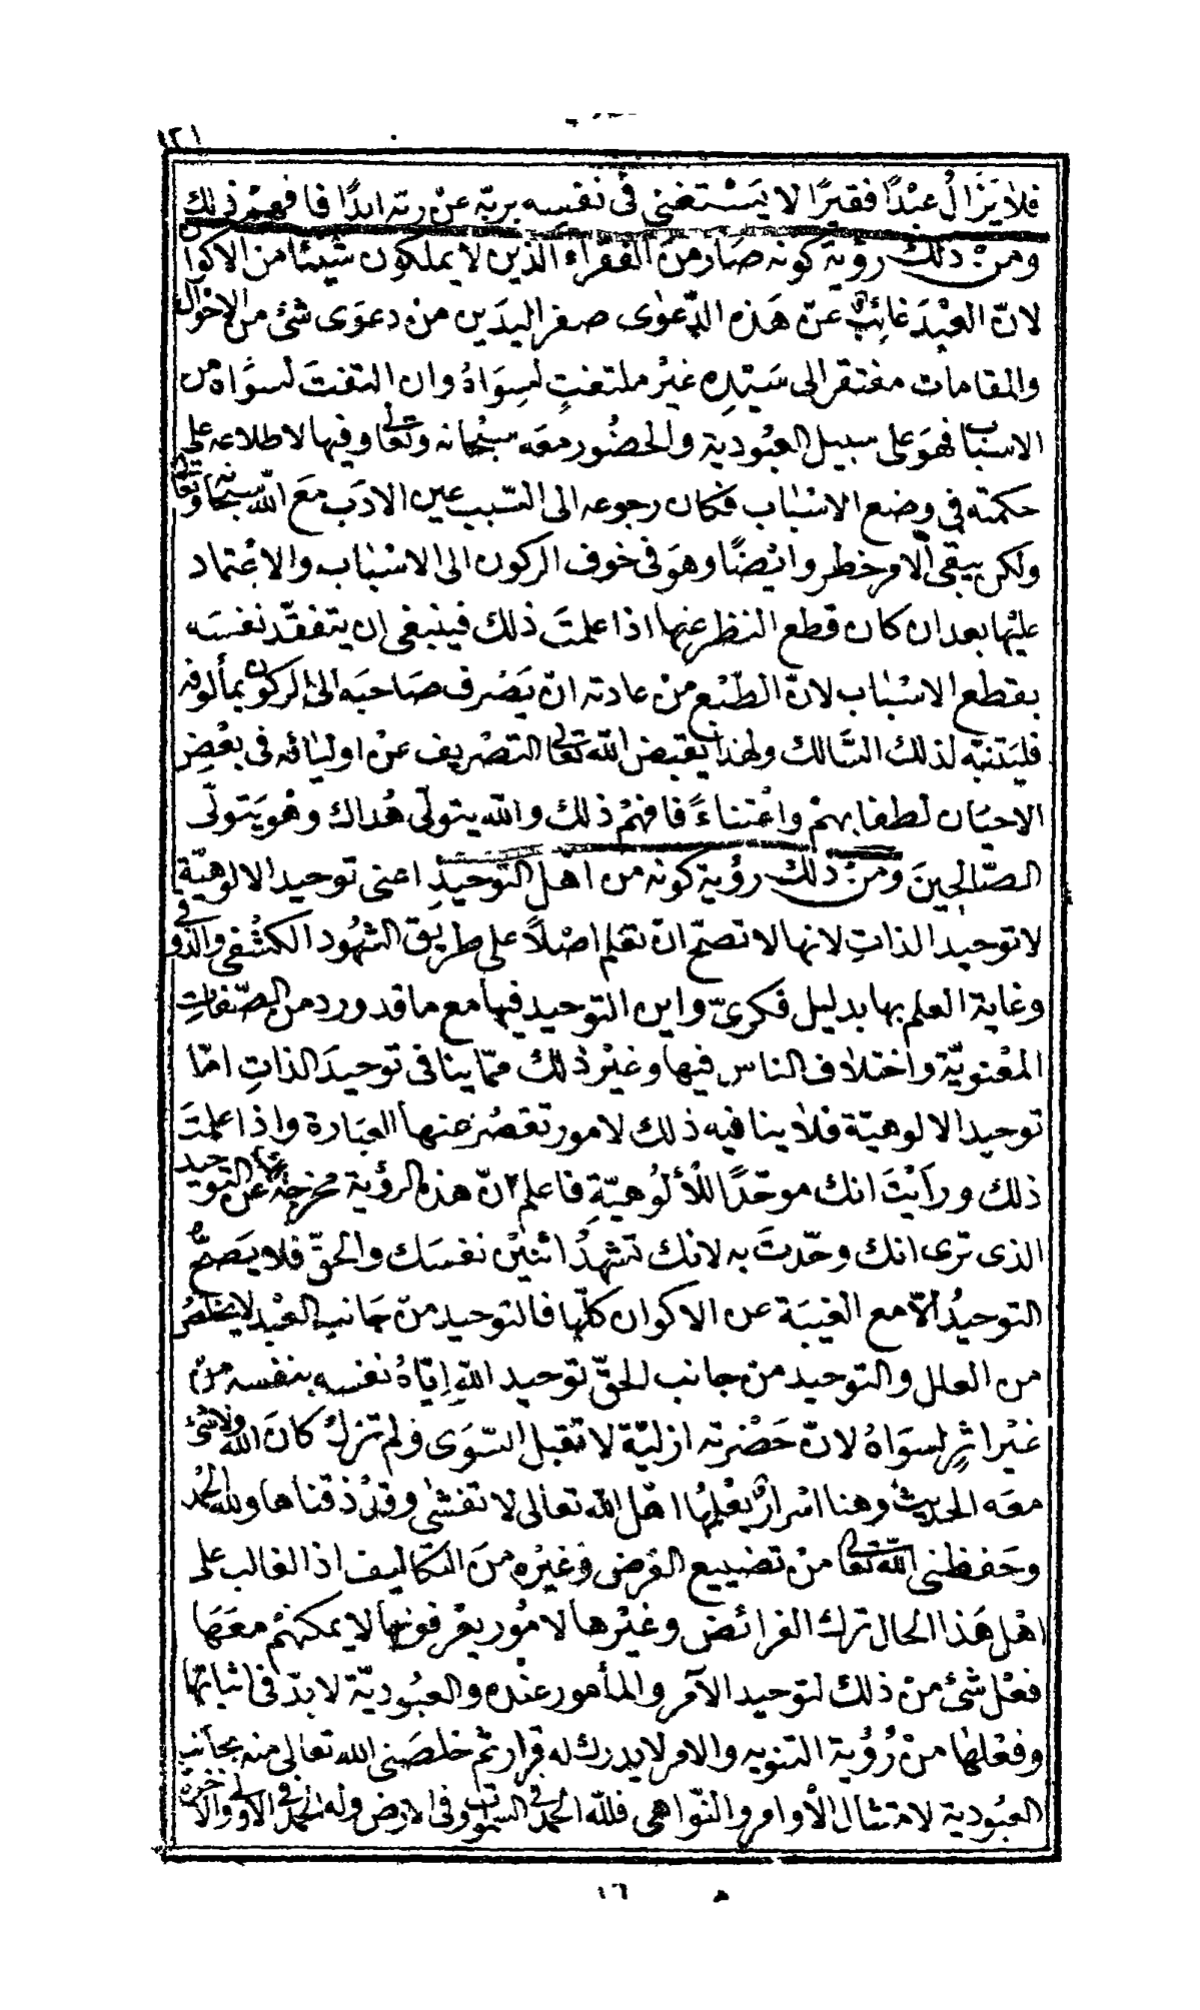 ١٢١
فلا يَزَالُ عبْدًا فقيرًا لا يَسْتغنى فى نفسِه بربّه عنْ ربّه ابدًا فافهمْ ذلك
ومنْ ذلك رؤية كونه صَار منَ الفقراء الذين لا يملكون شيئا من الاكوان
لانّ العبْدَ غائبٌ عنْ هَذه الدّعوٰى صفر اليدَين منْ دعوَى شئ من الاحوال
والمقامات مفتقر الى سَيّدِه غيْر ملتفتٍ لسِوَاهُ وان التفتَ لسوَاه من
الاسباب فهوَ على سبيل العبُودية والحضُور معَه سبْحانه وتعالى وفيها لاطلاعه على
حكمته فى وضع الاسْبٰاب فكان رجوعه الى السّبب عين الادَب معَ اللّه سبحانه وتعالى
ولكن يبقى الامر خطر وايْضًا وهوَ فى خوف الركون الى الاسْبٰاب والاعْتماد
عليْها بعد ان كان قطع النظر عنها اذا علمتَ ذلك فينبغى ان يتفقّد نفسَه
بقطع الاسْبٰاب لانّ الطّبْع منْ عادته انْ يَصْرف صَاحبَه الى الركون بمألوفه
فليَتنبّه لذلك السَّالك ولهذا يقبض اللّه تعالى التصْريف عنْ اوليٰائه فى بعْضِ
الاحيَان لطفا بهمْ واعْتناءً فافهمْ ذلك واللّه يتولّى هُداك وهْو يَتولّى
الصّالحِينَ ومنْ ذلك رؤية كونه من اهْل التوحيدِ اعنى توحيد الالوهيّة
لا توحيد الذاتِ لانها لا تصحّ انْ تعلم اصْلاً على طريق الشهُود الكشْفى والذوقى
وغاية العلم بها بدليل فكرىّ واين التوحيد فيها مع ما قد ورد من الصّفاتِ
المعْنويّة واختلاف الناس فيها وغيْر ذلك ممّا ينافى توحيدَ الذاتِ امّا
توحيد الالوهيّة فلا ينافيه ذلك لامور تقصُر عنها العبَارة واذا علمتَ
ذلك ورأيْتَ انك موحّدًا للأُلُوهيّةِ فاعلم انّ هذه الرؤية مخرجة لك عن التوحيد
الذى ترى انك وحّدتَ به لانك تشهدُ اثنيْن نفسَك والحقّ فلا يَصحُّ
التوحيدُ الاّ مع الغيبَة عن الاكوان كلّها فالتوحيد منْ جَانب العبْد لا يخلصُ
من العلل والتوحيد من جانب الحقّ توحيد اللّهِ ايّاهُ نفسه بنفسه منْ
غيْر اثرٍ لسوَاهُ لانّ حَضْرته ازليّة لا تقبل السّوَى ولم تزلْ كانَ اللّه ولا شئ
معَه الحديث وهنا اسْرار يعْلمُها اهْل اللّه تعالى لا تفشٰى وقدْ ذقناها ولله الحمْد
وحَفظنى اللّه تعالى منْ تضييع الفرض وغيْره منَ التكاليف اذ الغالب على
اهْل هَذا الحال ترك الفرائض وغيْرها لامُور يعْرفونها لا يمكنهمْ معَهَا
فعْل شئ منْ ذلك لتوحيد الآمر والمأمور عنْده والعبُوديّة لا بدّ فى اثباتها
وفعْلهٰا منْ رُؤْية التنويه والامر لا يدرك له قرار ثم خلصَنى الله تعالى منه بجانب
العبُودية لامتثال الأوامر والنّواهى فللّه الحمْد فى السمٰوات وفى الارض وله الحمْد فى الاولى والآخرة
١٦